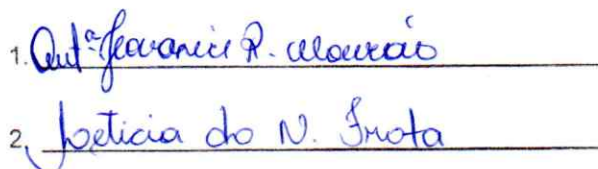 1. Antª Geovanice R. Mourão
2. Leticia do N. Frota